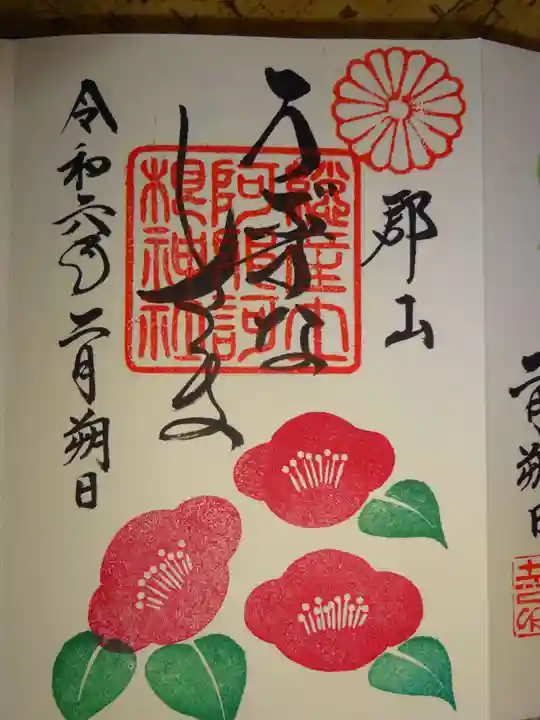 郡山
うぶすな
總産土
阿邪訶
根神社
令和六年二月朔日
二月朔日